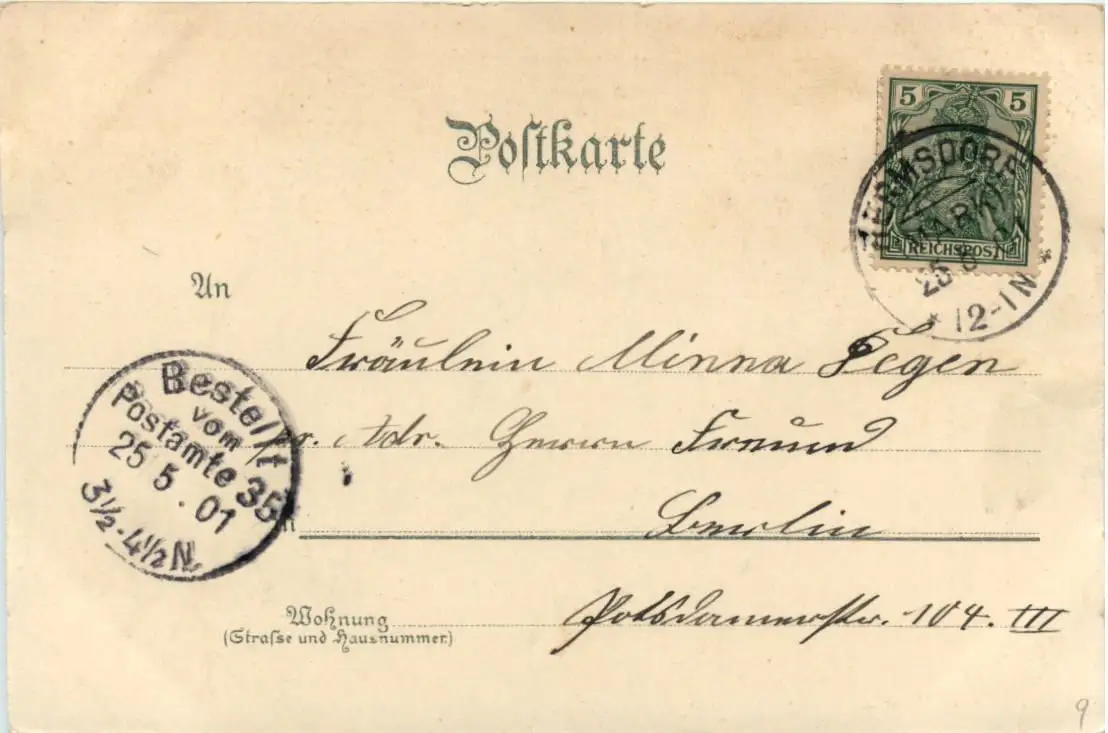 Postkarte
5 5
REICHSPOST
HERMSDORF
(MARK)
25 5 01
* 12-1N *
An
Fräulein Minna Tegen
Bestellt
vom
Postamte 35
25 5 . 01
3½-4½N.
r. Adr. Herrn Freund
in
Berlin
Wohnung
(Strasse und Hausnummer)
Potsdamerstr. 104. III
9